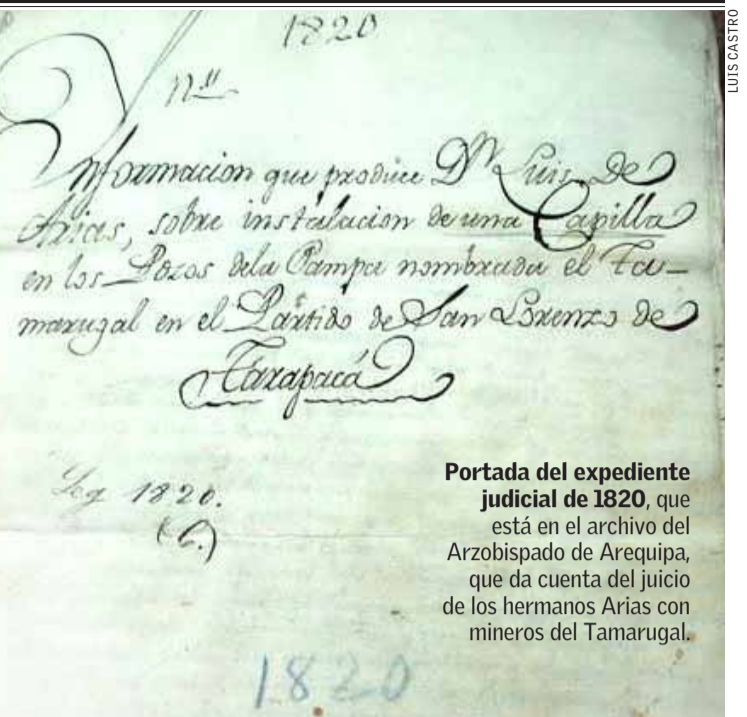 1820
Nº
Informacion que produce Dn Luis de
Arias, sobre instalacion de una Capilla
en los Pozos dela Pampa nombrada el Ta-
marugal en el Partido de San Lorenzo de
Tarapacá
Leg 1820.
(C.)
1820
Portada del expediente
judicial de 1820, que
está en el archivo del
Arzobispado de Arequipa,
que da cuenta del juicio
de los hermanos Arias con
mineros del Tamarugal.
LUIS CASTRO